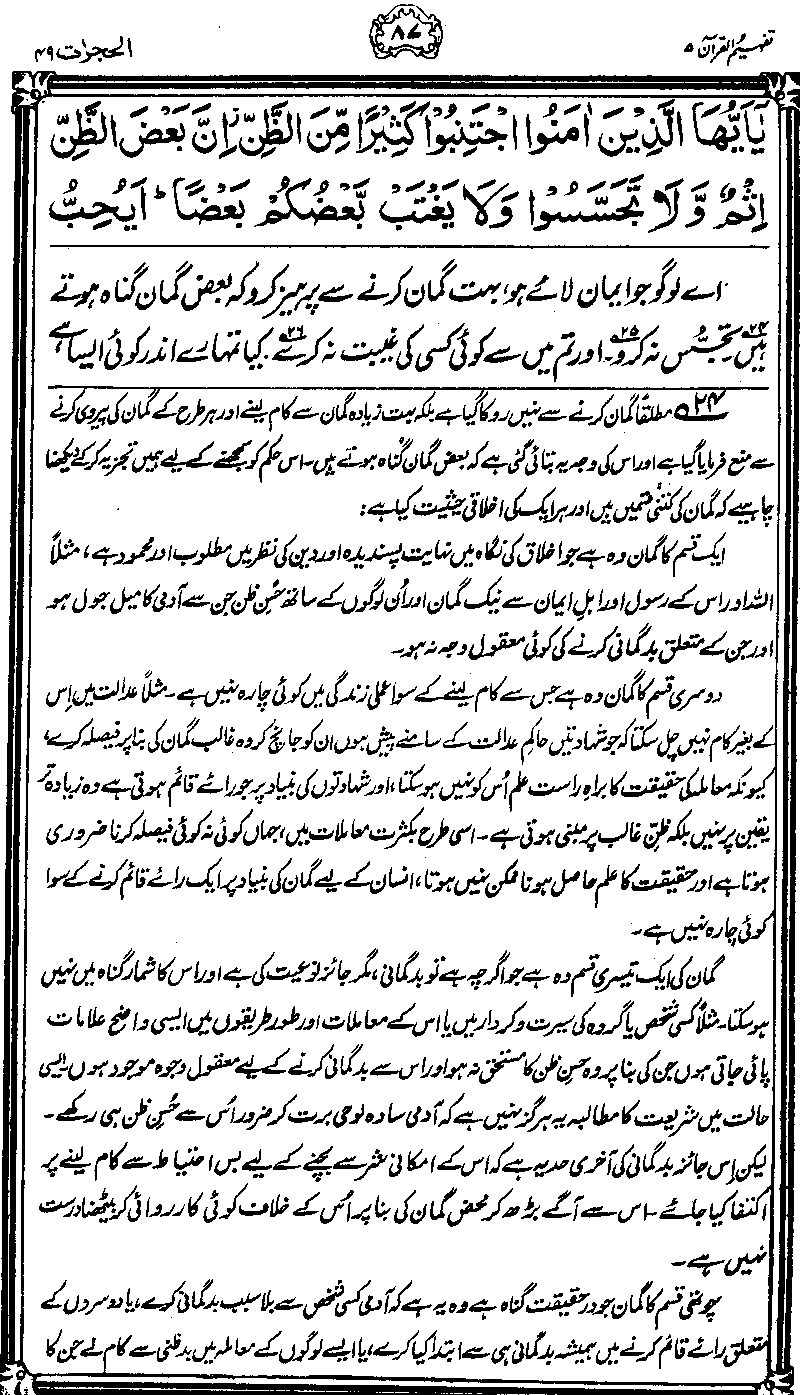 تفہیم القرآن ۵
۸۷
الحجرات ۴۹
يٰٓاَيُّهَا الَّذِيْنَ اٰمَنُوا اجْتَنِبُوْا كَثِيْرًا مِّنَ الظَّنِّ ۡ اِنَّ بَعْضَ الظَّنِّ
اِثْمٌ وَّ لَا تَجَسَّسُوْا وَلَا يَغْتَبْ بَّعْضُكُمْ بَعْضًا ؕ اَيُحِبُّ
اے لوگو جو ایمان لائے ہو، بہت گمان کرنے سے پرہیز کرو کہ بعض گمان گناہ ہوتے
ہیں۲۴۔ تجسُّس نہ کرو۲۵۔ اور تم میں سے کوئی کسی کی غیبت نہ کرے۲۶۔ کیا تمہارے اندر کوئی ایسا ہے
۲۴ مطلقاً گمان کرنے سے نہیں روکا گیا ہے بلکہ بہت زیادہ گمان سے کام لینے اور ہر طرح کے گمان کی پیروی کرنے
سے منع فرمایا گیا ہے اور اس کی وجہ یہ بتائی گئی ہے کہ بعض گمان گناہ ہوتے ہیں۔ اس حکم کو سمجھنے کے لیے ہمیں تجزیہ کر کے دیکھنا
چاہیے کہ گمان کی کتنی قسمیں ہیں اور ہر ایک کی اخلاقی حیثیت کیا ہے:
ایک قسم کا گمان وہ ہے جو اخلاق کی نگاہ میں نہایت پسندیدہ اور دین کی نظر میں مطلوب اور محمود ہے، مثلاً
اللہ اور اس کے رسول اور اہلِ ایمان سے نیک گمان اور اُن لوگوں کے ساتھ حُسنِ ظن جن سے آدمی کا میل جول ہو
اور جن کے متعلق بدگمانی کرنے کی کوئی معقول وجہ نہ ہو۔
دوسری قسم کا گمان وہ ہے جس سے کام لینے کے سوا عملی زندگی میں کوئی چارہ نہیں ہے۔ مثلاً عدالت میں اِس
کے بغیر کام نہیں چل سکتا کہ جو شہادتیں حاکمِ عدالت کے سامنے پیش ہوں ان کو جانچ کر وہ غالب گمان کی بنا پر فیصلہ کرے،
کیونکہ معاملہ کی حقیقت کا براہِ راست علم اُس کو نہیں ہو سکتا، اور شہادتوں کی بنیاد پر جو رائے قائم ہوتی ہے وہ زیادہ تر
یقین پر نہیں بلکہ ظنِّ غالب پر مبنی ہوتی ہے۔ اسی طرح بکثرت معاملات ہیں، جہاں کوئی نہ کوئی فیصلہ کرنا ضروری
ہوتا ہے اور حقیقت کا علم حاصل ہونا ممکن نہیں ہوتا، انسان کے لیے گمان کی بنیاد پر ایک رائے قائم کرنے کے سوا
کوئی چارہ نہیں ہے۔
گمان کی ایک تیسری قسم وہ ہے جو اگرچہ ہے تو بدگمانی، مگر جائز نوعیت کی ہے اور اس کا شمار گناہ میں نہیں
ہو سکتا۔ مثلاً کسی شخص یا گروہ کی سیرت و کردار میں یا اس کے معاملات اور طور طریقوں میں ایسی واضح علامات
پائی جاتی ہوں جن کی بنا پر وہ حسنِ ظن کا مستحق نہ ہو اور اس سے بدگمانی کرنے کے لیے معقول وجوہ موجود ہوں۔ ایسی
حالت میں شریعت کا مطالبہ یہ ہرگز نہیں ہے کہ آدمی سادہ لوحی برت کر ضرور اُس سے حُسنِ ظن ہی رکھے۔
لیکن اِس جائز بدگمانی کی آخری حد یہ ہے کہ اس کے امکانی شر سے بچنے کے لیے بس احتیاط سے کام لینے پر
اکتفا کیا جائے۔ اس سے آگے بڑھ کر محض گمان کی بنا پر اُس کے خلاف کوئی کارروائی کر بیٹھنا درست
نہیں ہے۔
چوتھی قسم کا گمان جو در حقیقت گناہ ہے وہ یہ ہے کہ آدمی کسی شخص سے بلا سبب بدگمانی کرے، یا دوسروں کے
متعلق رائے قائم کرنے میں ہمیشہ بدگمانی ہی سے ابتدا کیا کرے، یا ایسے لوگوں کے معاملہ میں بدظنی سے کام لے جن کا